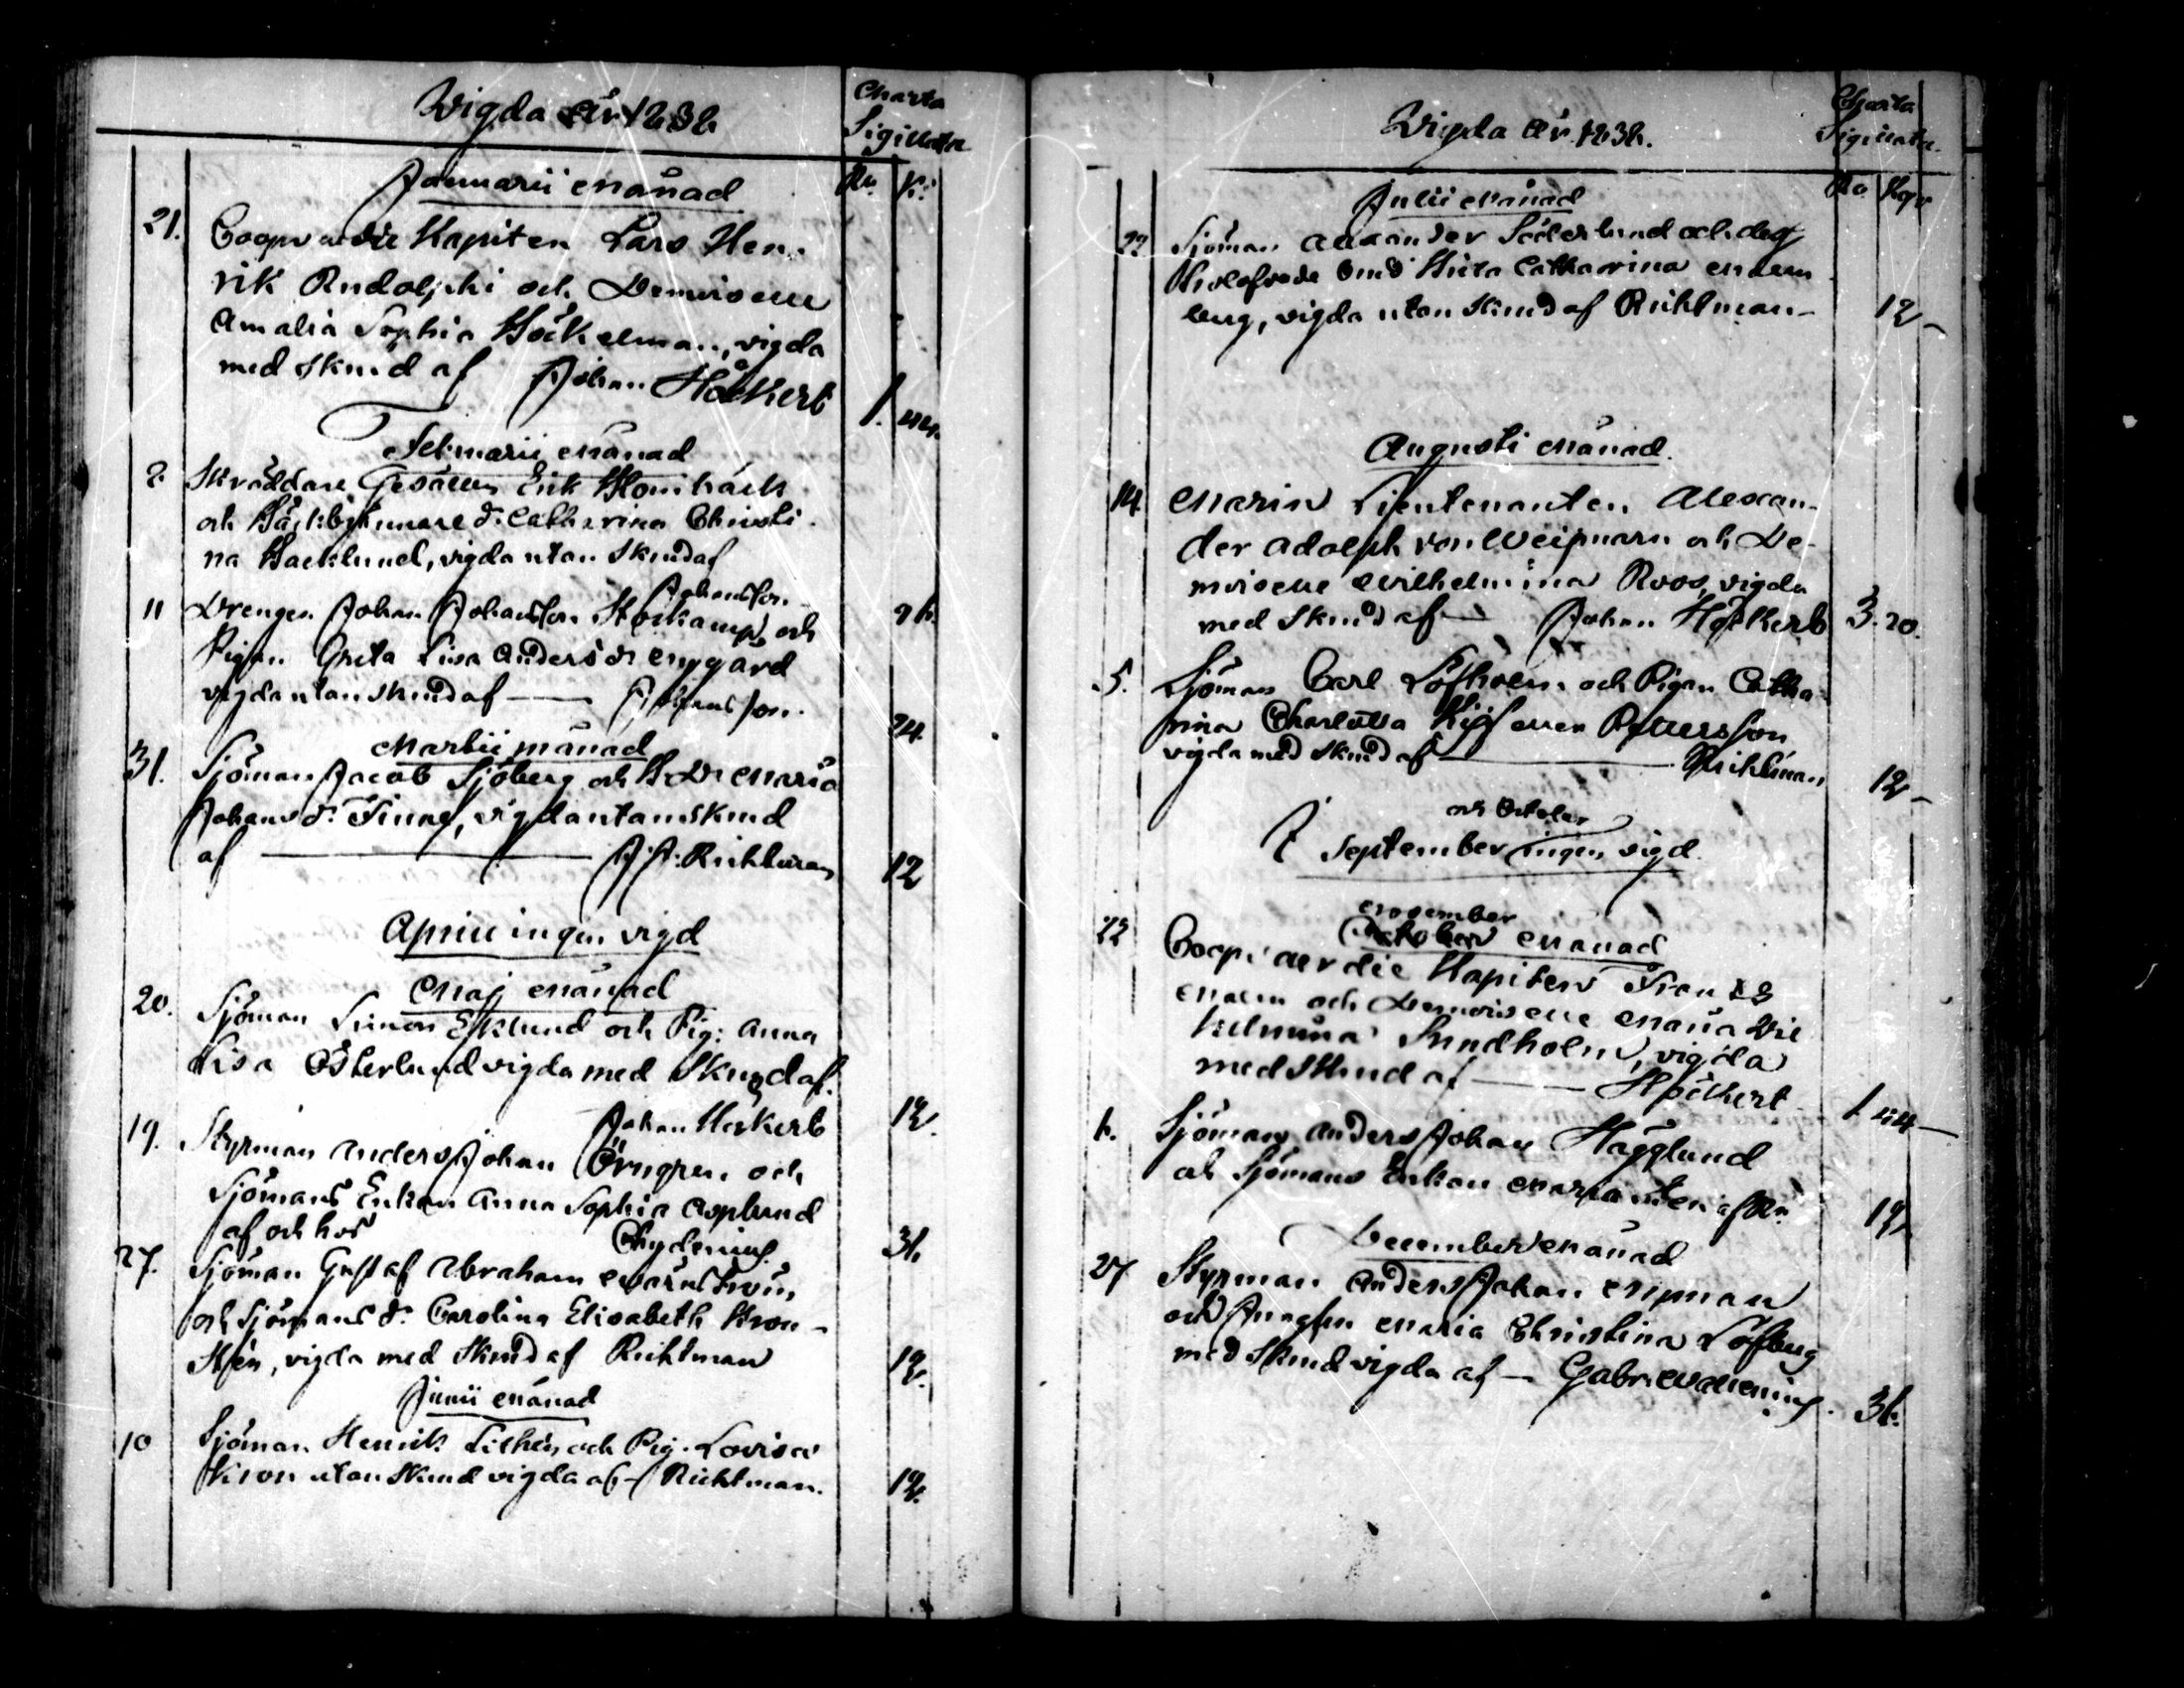 Wigda år 1838
Charta
Sigillata
Ru. K:
Januarii Månad
21. Coopvardie Kapiten Lars Hen-
rik Rudolphi och Demoiselle
Amalia Sophia Böckelman, vigda
med skrud af Johan Höckert 1. 44.
Februarii Månad
8 Skräddare Gesällen Erik
och Bäckbyknnare d: Catharina Christi-
na Backlund, vigda utan skrud af
Johansson
11 Drengen Johan Johansson Storkamp och
Pigan Greta Lisa Anders dr Nygård
vigda utan skrud af — Johansson. 24.
Martii Månad
31. Sjöman Jacob Sjöberg och B. Dr Maria
Johans dr Finne, vigda utan skrud
af — Richtman 12
Aprill ingen vigd
Maj Månad
20. Sjöman Simon Esklund och Pig: Anna
Lisa Österlund vigda med Skrud af
Johan Höckert 12.
19. Styrman Anders Johan Örngren och
Sjömans Enkan Anna Sophia Asplund
af och hos Chydenius 36.
27. Sjöman Gustaf Abraham Warnström
och Sjömans dr Carolina Elisabeth Kron-
, vigda med Skrud af Richtman 12.
Junii Månad
10 Sjöman Henrik Lithén och Pig. Lovisa
Kron utan skrud vigda af — Richtman. 12.
Wigda år 1838.
Charta
Sigillata.
Ro. Kop
Julii Månad
22 Sjöman Alexander Söderlund och deg
Catharina
berg, vigda utan skrud af Richtman — 12 –
Augusti Månad.
14 Marin Lieutenanten Alexan-
der Adolph von Weissman och De-
moiselle Wilhelmina Roos, vigda
med Skrud af — Johan Höckert 3. 20.
5. Sjöman Carl Löfholm och Pigan Catha-
rina Charlotta Pettersson
vigda med skrud af — Richtman 12 –
och October
I September ingen vigd.
November
October Månad
22 Coopvaerdie Kapiten Frans
Malm och Demoiselle Maria Vil
helmina Sundholm, vigda
med Skrud af — Höckert 1 44 —
6. Sjöman Anders Johan Hägglund
och Sjömans Enkan Maria af Rn. 12
December Månad
27 Styrman Anders Johan Nyman
och Jungfru Maria Christina Löfberg
med Skrud vigda af — Gabr. Wallenius. 36.